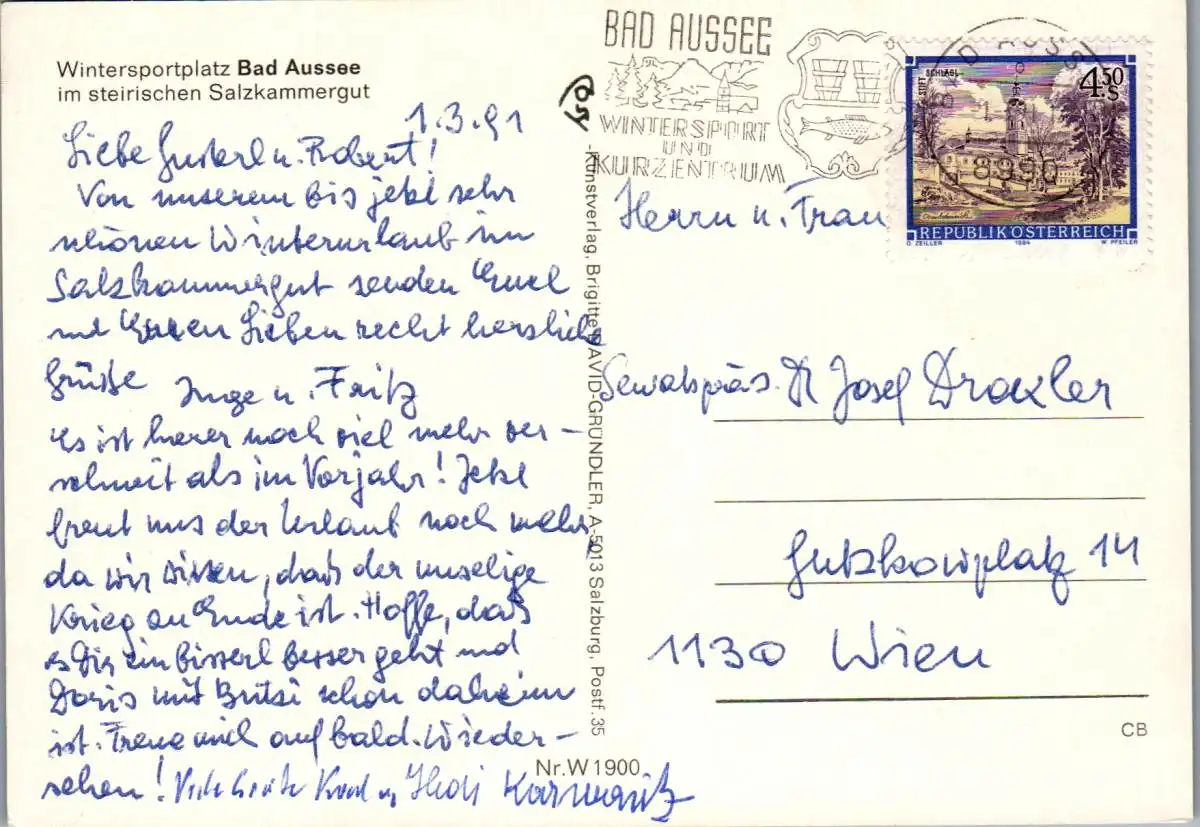 Wintersportplatz Bad Aussee
im steirischen Salzkammergut
1.3.91
Liebe Gusterl u. Robert!
Von unserem bis jetzt sehr
schönen Winterurlaub im
Salzkammergut senden Euch
und Euren Lieben recht herzliche
Grüße Inge u. Fritz
Es ist heuer noch viel mehr ver-
schneit als im Vorjahr! Jetzt
freut uns der Urlaub noch mehr,
da wir wissen, daß der unselige
Krieg zu Ende ist. Hoffe, daß
es Dir ein bisserl besser geht und
Doris mit Butzi schon daheim
ist. Freue mich auf bald. Wieder-
sehen! Viele
Nr. W 1900
-Kunstverlag, Brigitte DAVID-GRÜNDLER, A-5013 Salzburg, Postf. 35
BAD AUSSEE
WINTERSPORT
UND
KURZENTRUM
BAD AUSSEE
8990
STIFT SCHLÄGL
4.50
S
REPUBLIK ÖSTERREICH
O. ZEILLER 1984 W. PFEILER
Herrn u. Frau
Senatspräs. Dr Josef Draxler
Gutzkowplatz 14
1130 Wien
CB